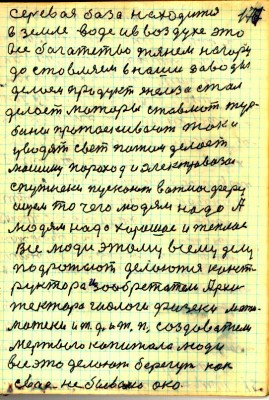 серевая база находится 177
в земле воде и в воздухе это
все багатство тянем нагору
до ставляем в наши заводы
делаем продукт железа стал
делоет маторы ставлют тур
бины протоскивают ток и
уводят свет потом делоет
машину пароход и электровозы
спутники пускают ватмасферу
ищем то чего людям надо А
людям надо хорошае и теплае
Все люди этому всему делу
подрожают делоются конст
руктора изообретатели Архи
тектора гиологи физики мате
матики и т. д. и т. п. создоватем
мертвого капитала люди
все это делоют берегут как
свае не бывало око